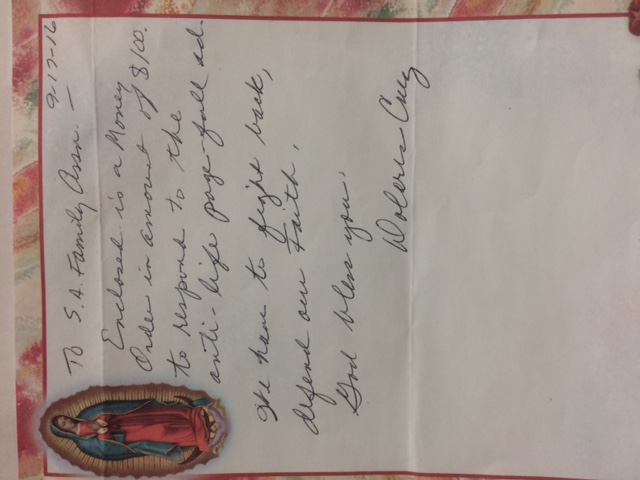 9-17-16
To S.A. Family Assn. —
Enclosed is a Money
Order in amount of $100.
to respond to the
anti-life page-full ad.
We have to fight back,
defend our Faith.
God bless you.
Dolores